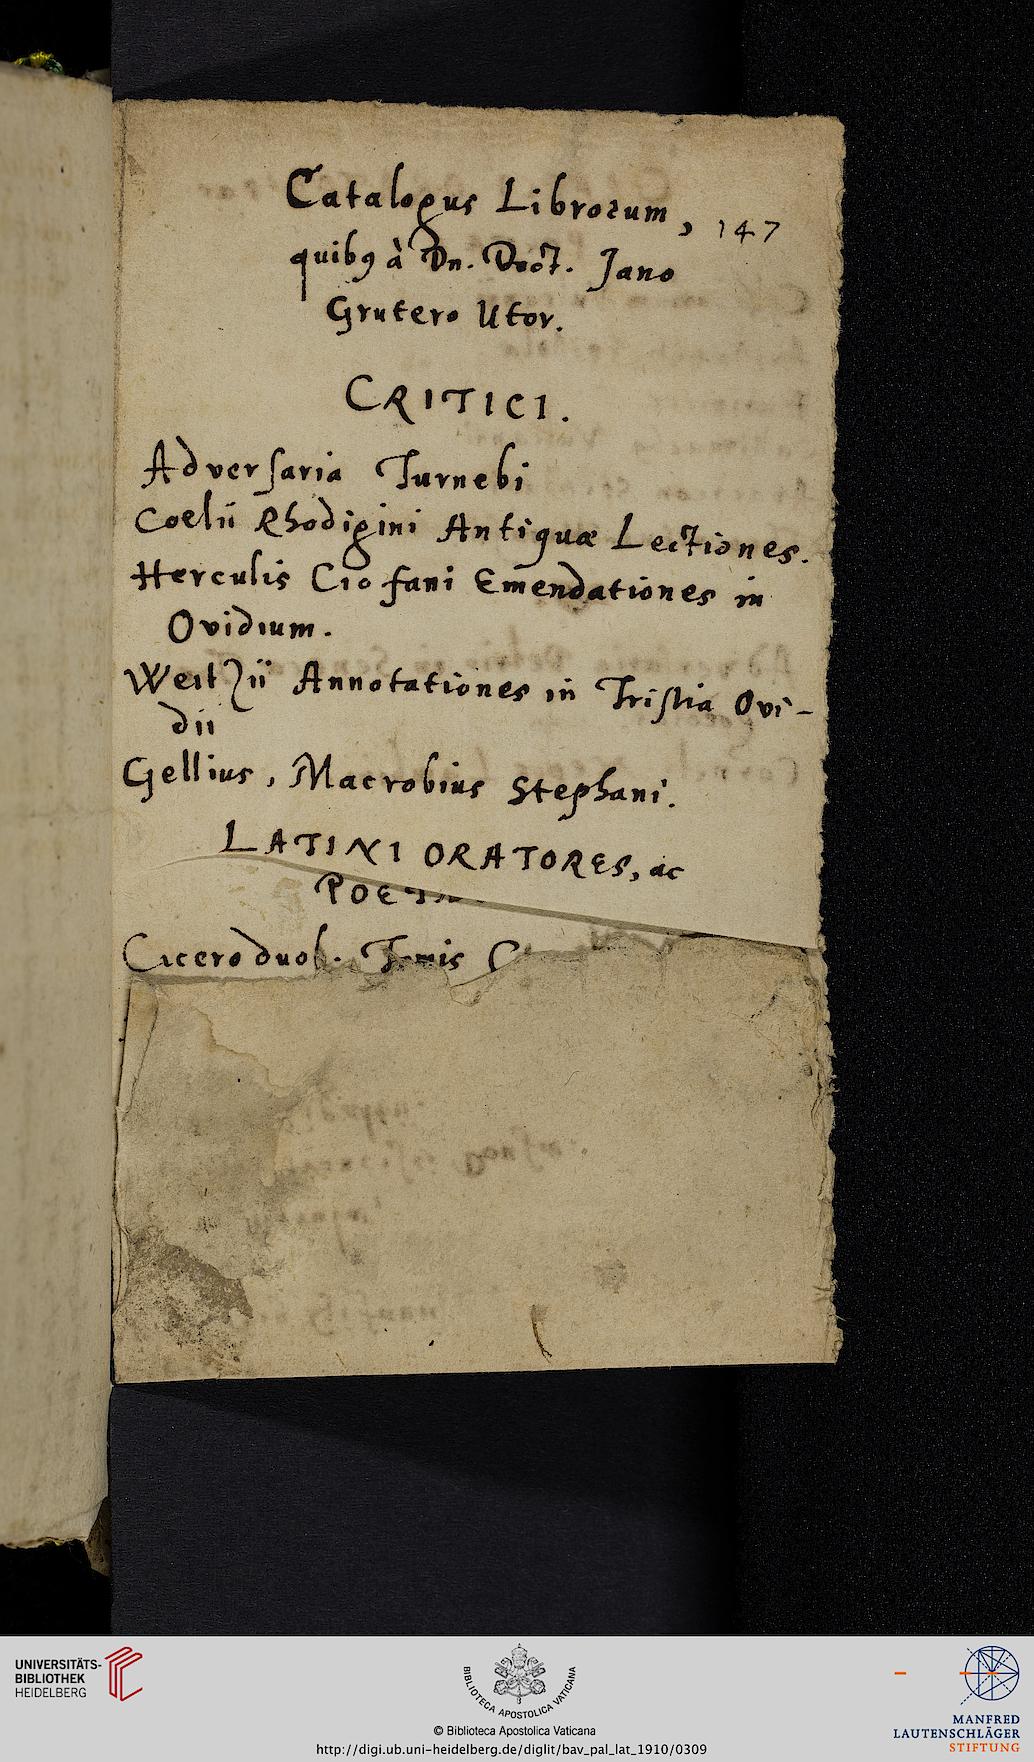 Catalogus Librorum,
147
quibꝰ à Dn. Doct. Jano
Grutero Utor.
CRITICI.
Adversaria Turnebi
Coelii Rhodigini Antiquæ Lectiones.
Herculis Ciofani Emendationes in
Ovidium.
Weitzii Annotationes in Tristia Ovi-
dii
Gellius, Macrobius Stephani.
LATINI ORATORES, ac
Cicero duob. Tomis
UNIVERSITÄTS-
BIBLIOTHEK
HEIDELBERG
BIBLIOTECA APOSTOLICA VATICANA
© Biblioteca Apostolica Vaticana
http://digi.ub.uni-heidelberg.de/diglit/bav_pal_lat_1910/0309
MANFRED
LAUTENSCHLÄGER
STIFTUNG